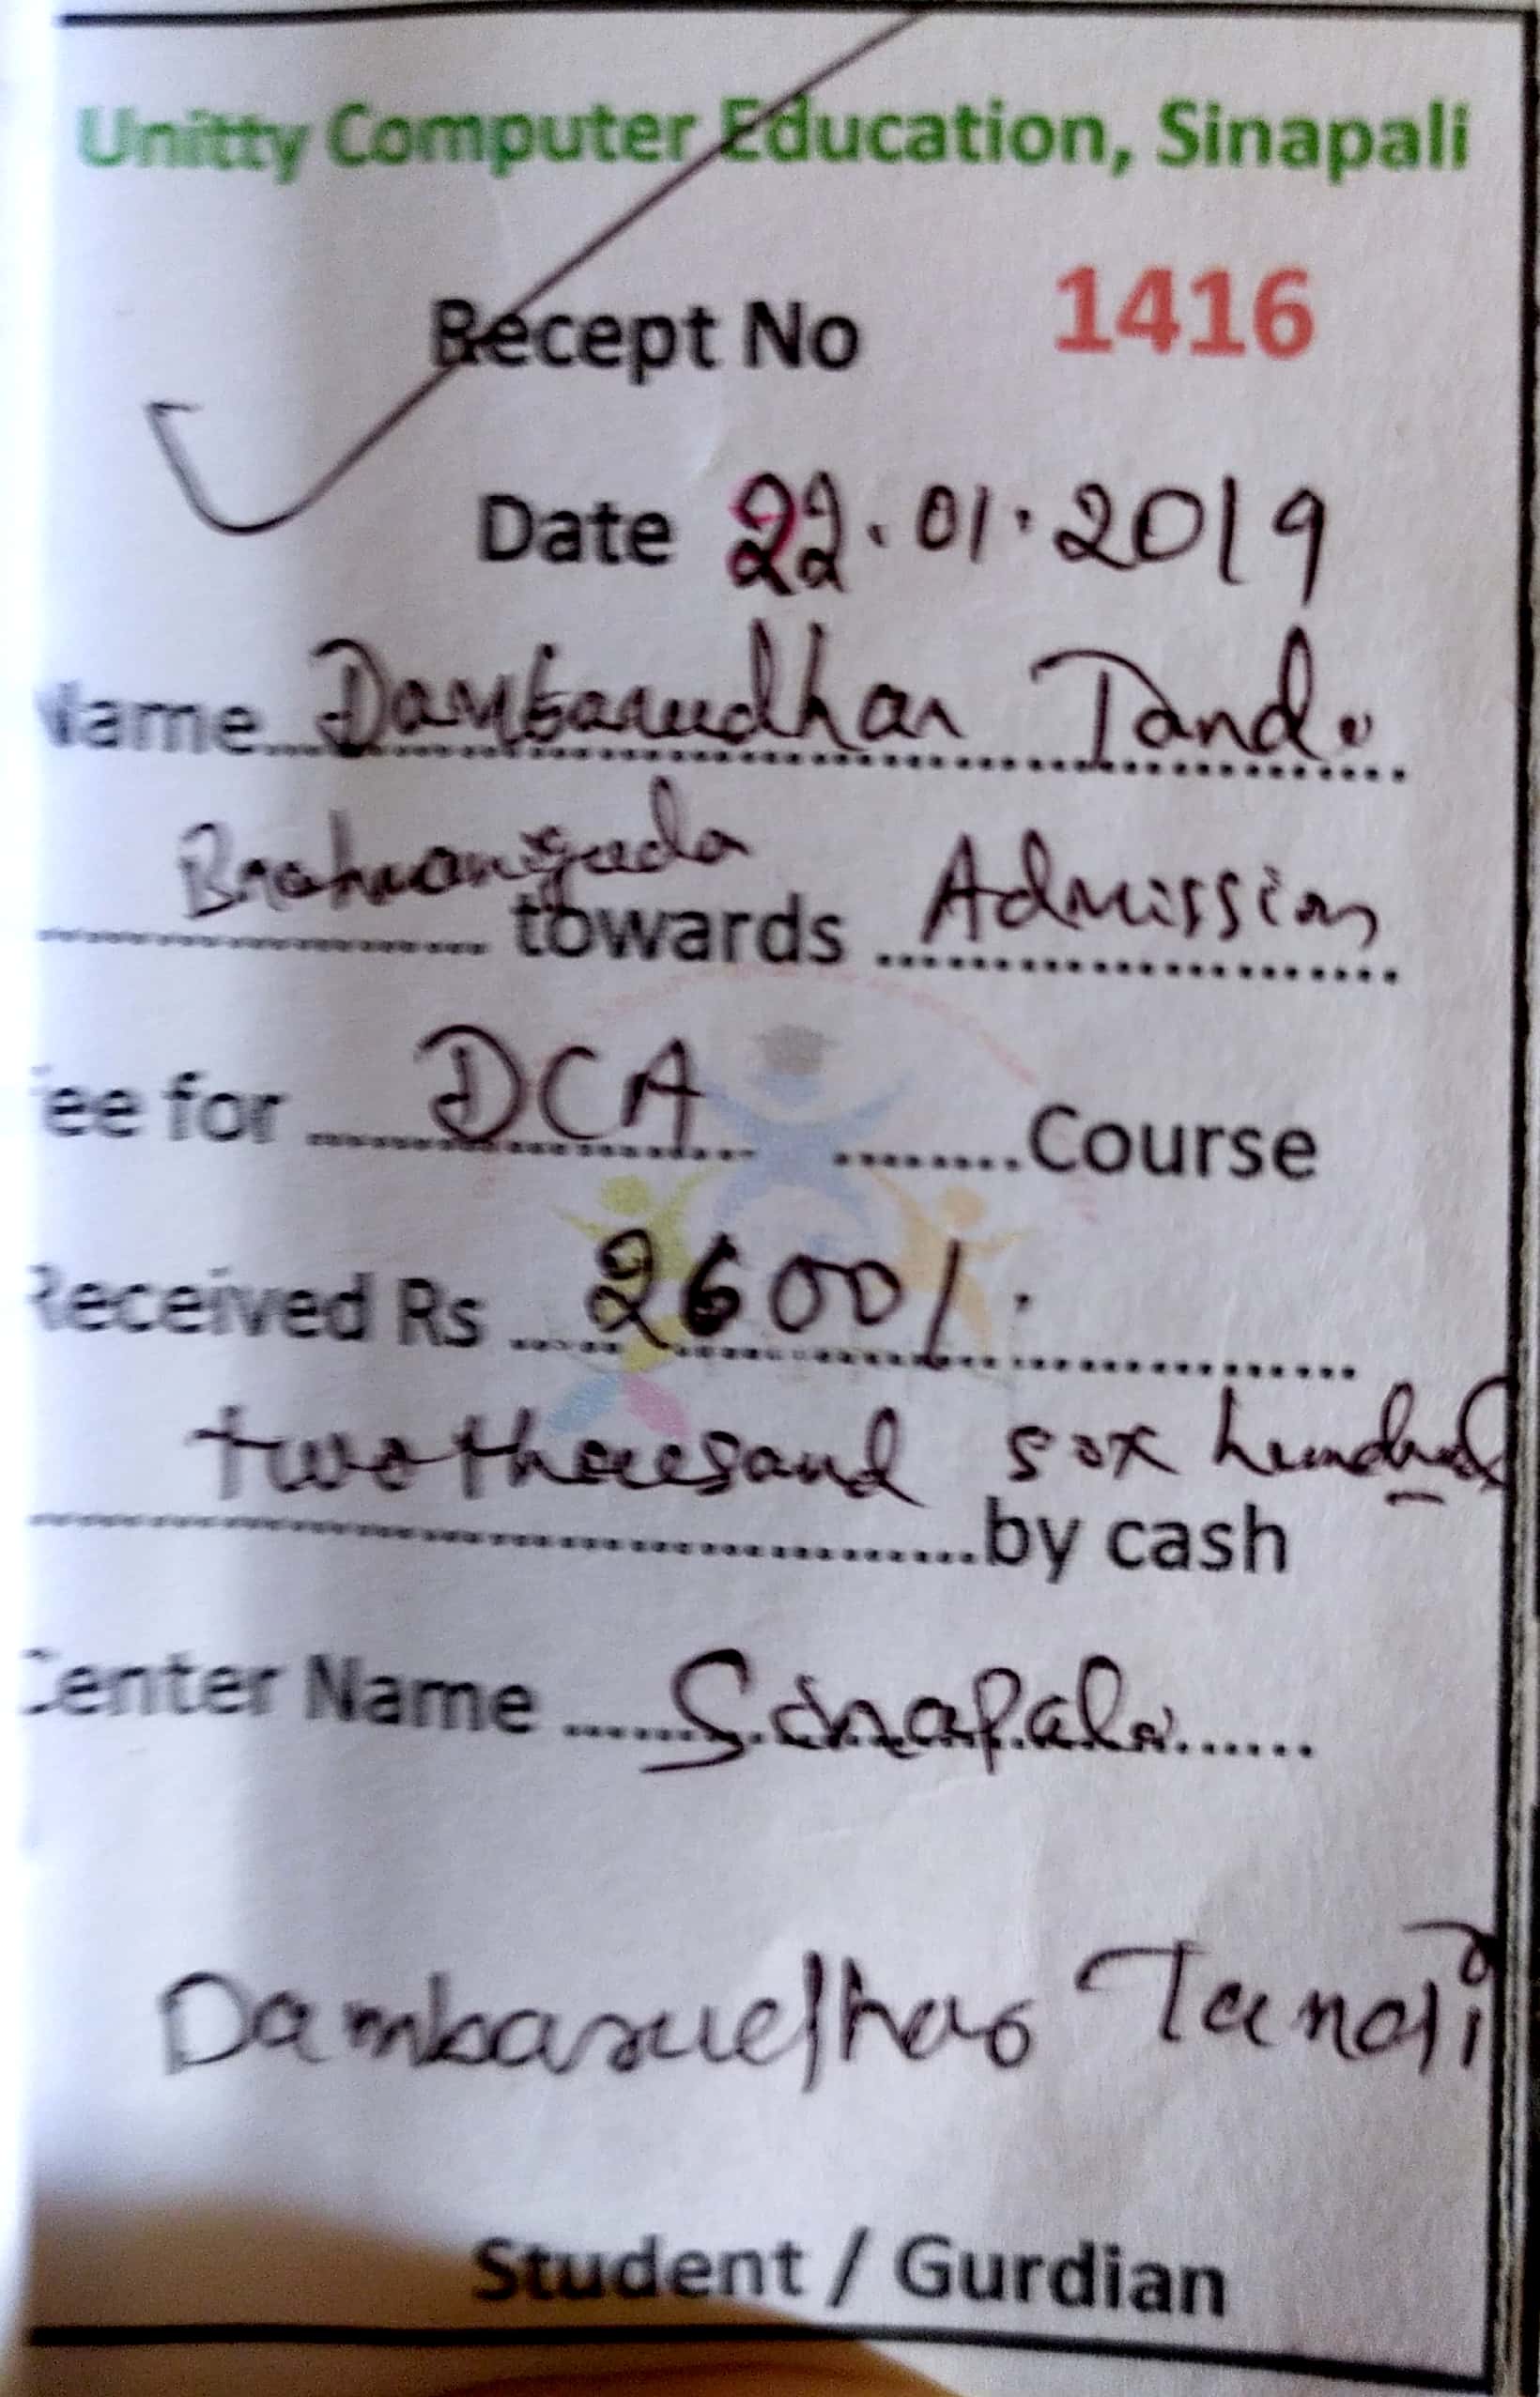 Unitty Computer Education, Sinapali
Recept No 1416
Date 22.01.2019
Name Dambarudhar Tandi
Brahmanguda towards Admission
fee for DCA Course
Received Rs 2600/.
two thousand six hundred
by cash
Center Name Sinapali
Dambarudhar Tandi
Student / Gurdian